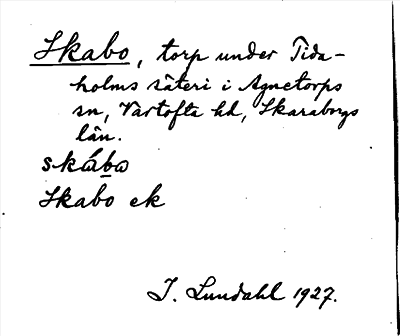 Skabo, torp under Tida-
holms säteri i Agnetorps
sn, Vartofta hd, Skaraborgs
län.
skába
Skabo ek
I. Lundahl 1927.